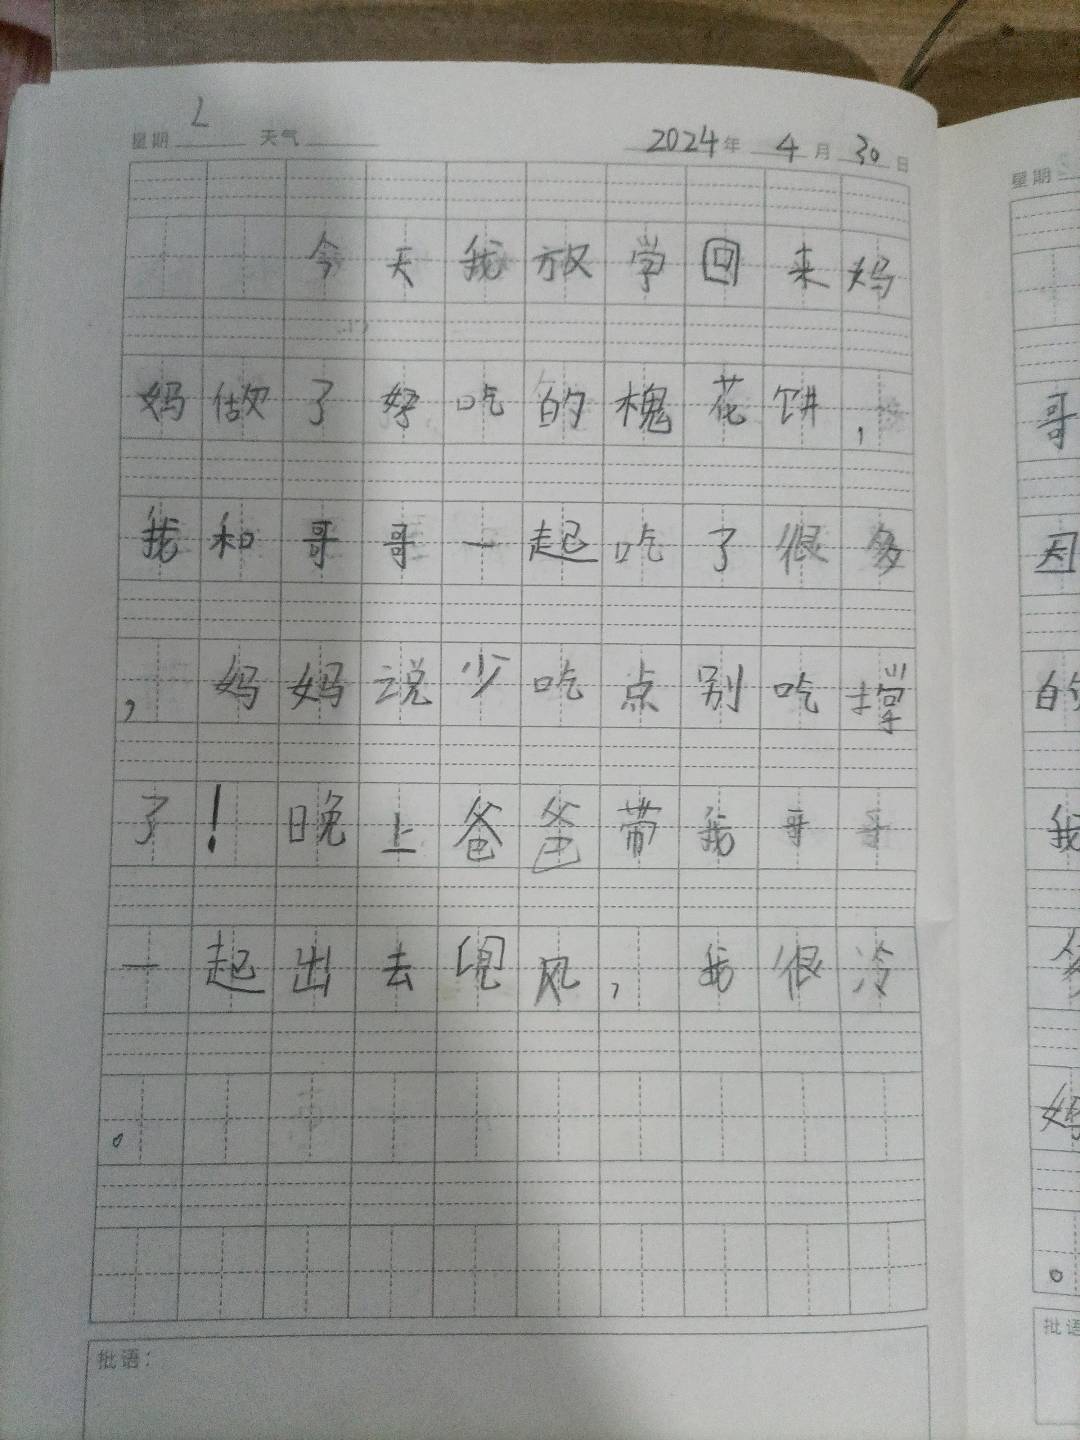 星期 天气 2024年 4月 30日
今天我放学回来妈
妈做了好吃的槐花饼，
我和哥哥一起吃了很多
，妈妈说少吃点别吃撑
了！晚上爸爸带我哥哥
一起出去兜风，我很冷
。
批语：
星期
哥
因
的
我
妈
。
批语